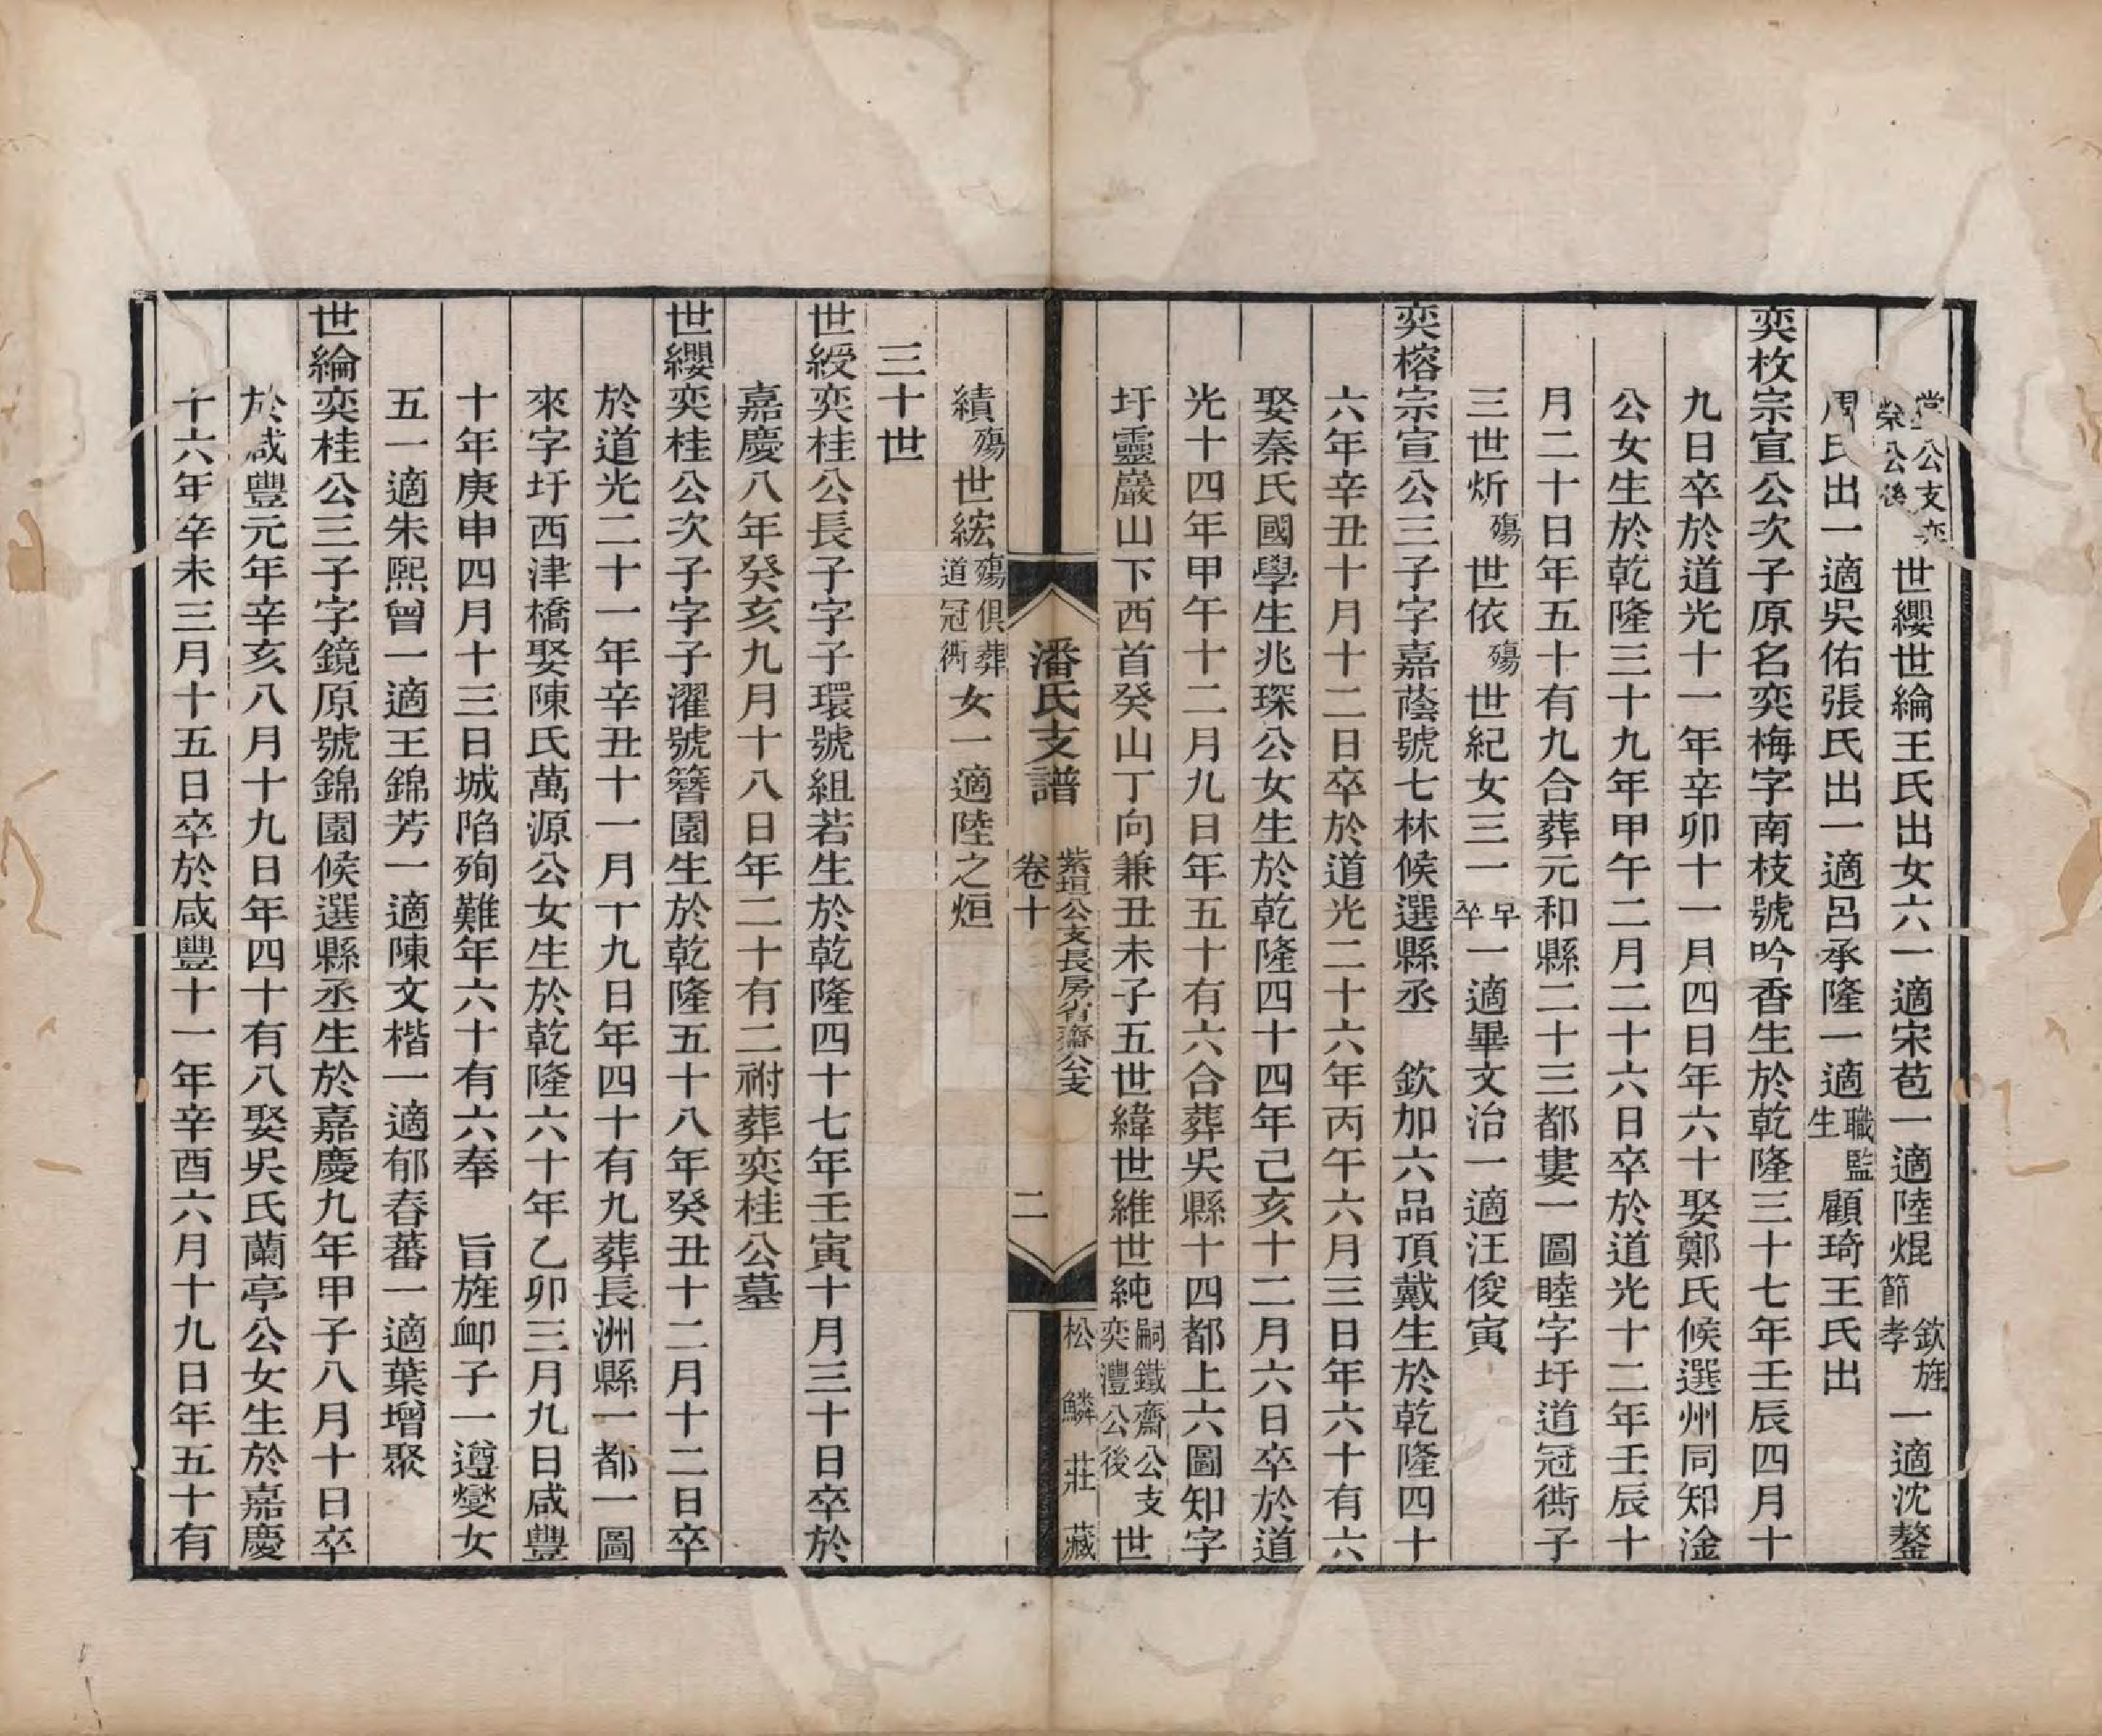 堂公支奕榮公後世纓世綸王氏出女六一適宋苞一適陸焜欽旌節孝一適沈鏊
周氏出一適吳佑張氏出一適呂承隆一適職監生顧琦王氏出
奕枚宗宣公次子原名奕梅字南枝號吟香生於乾隆三十七年壬辰四月十
九日卒於道光十一年辛卯十一月四日年六十娶鄭氏候選州同知淦
公女生於乾隆三十九年甲午二月二十六日卒於道光十二年壬辰十
月二十日年五十有九合葬元和縣二十三都婁一圖睦字圩道冠衖子
三世炘殤世依殤世紀女三一早卒一適畢文治一適汪俊寅
奕榕宗宣公三子字嘉蔭號七林候選縣丞　欽加六品頂戴生於乾隆四十
六年辛丑十月十二日卒於道光二十六年丙午六月三日年六十有六
娶秦氏國學生兆琛公女生於乾隆四十四年己亥十二月六日卒於道
光十四年甲午十二月九日年五十有六合葬吳縣十四都上六圖知字
圩靈巖山下西首癸山丁向兼丑未子五世緯世維世純嗣鐵齋公支奕灃公後世
潘氏支譜　卷十　紫垣公支長房省齋公支　二　松鱗莊藏
績殤世綋殤俱葬道冠衖女一適陸之烜
三十世
世綬奕桂公長子字子環號組若生於乾隆四十七年壬寅十月三十日卒於
嘉慶八年癸亥九月十八日年二十有二祔葬奕桂公墓
世纓奕桂公次子字子濯號簪園生於乾隆五十八年癸丑十二月十二日卒
於道光二十一年辛丑十一月十九日年四十有九葬長洲縣一都一圖
來字圩西津橋娶陳氏萬源公女生於乾隆六十年乙卯三月九日咸豐
十年庚申四月十三日城陷殉難年六十有六奉　旨旌卹子一遵燮女
五一適朱熙曾一適王錦芳一適陳文楷一適郁春蕃一適葉增聚
世綸奕桂公三子字鏡原號錦園候選縣丞生於嘉慶九年甲子八月十日卒
於咸豐元年辛亥八月十九日年四十有八娶吳氏蘭亭公女生於嘉慶
十六年辛未三月十五日卒於咸豐十一年辛酉六月十九日年五十有